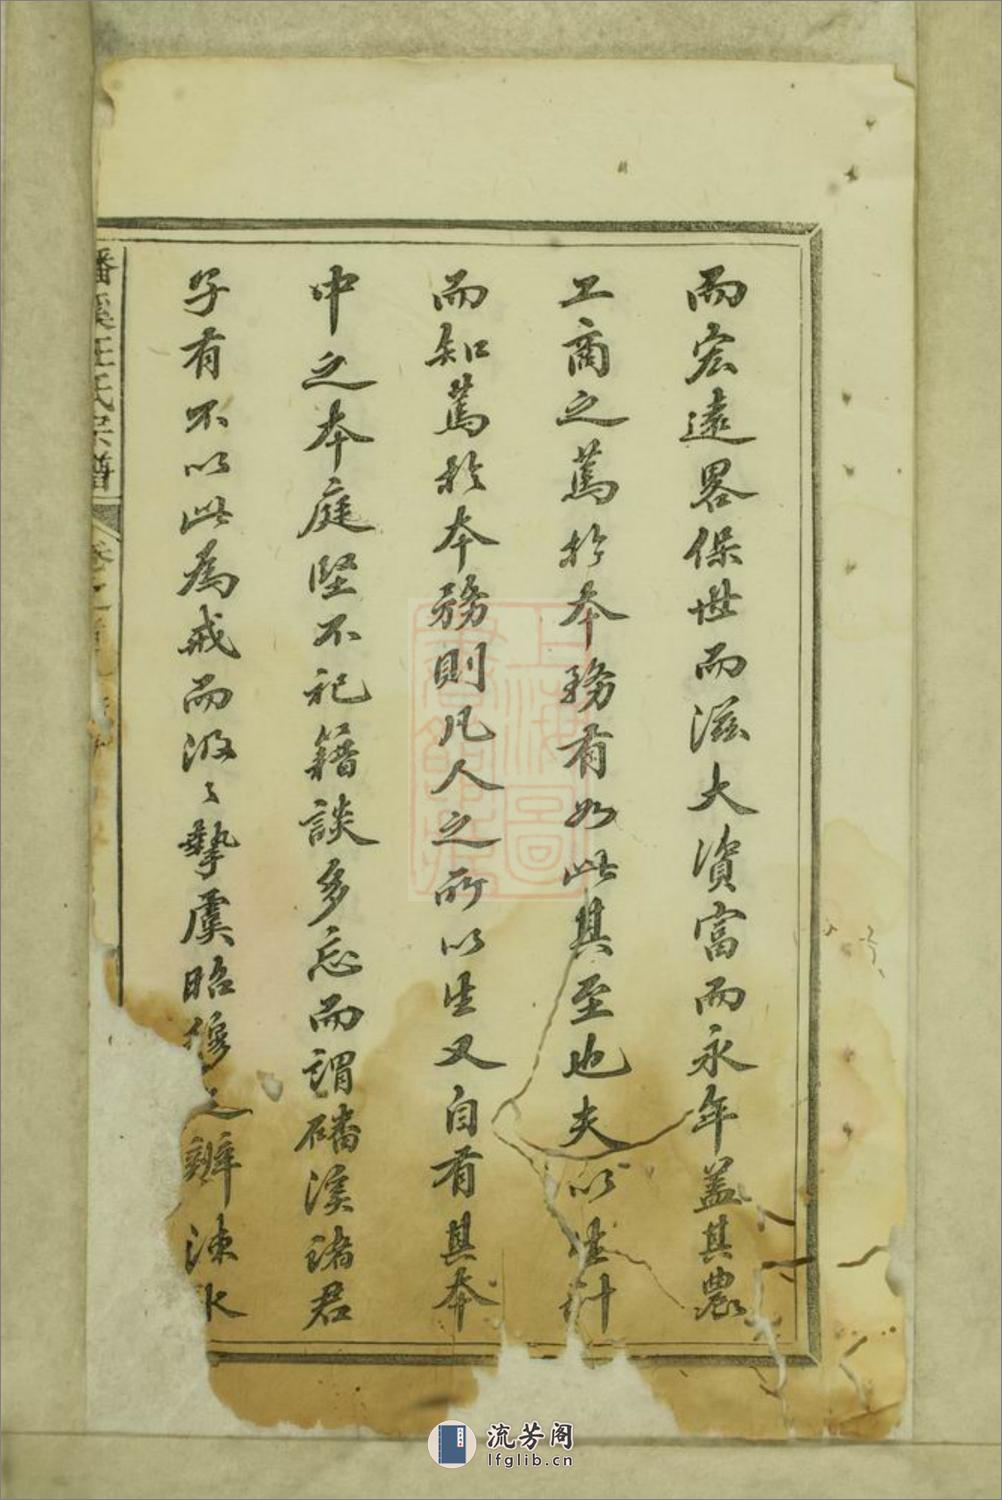 而宏遠畧保世而滋大資富而永年蓋其農
工商之篤於本務有如此其至也夫以生計
而知篤於本務則凡人之所以生又自有其本
中之本庭堅不祀籍談多忘而謂磻溪諸君
子有不以此為戒而汲〻摯虞昭穆之辨涑水
磻溪汪氏宗譜
卷之首
上海圖書館藏
流芳阁
lfglib.cn